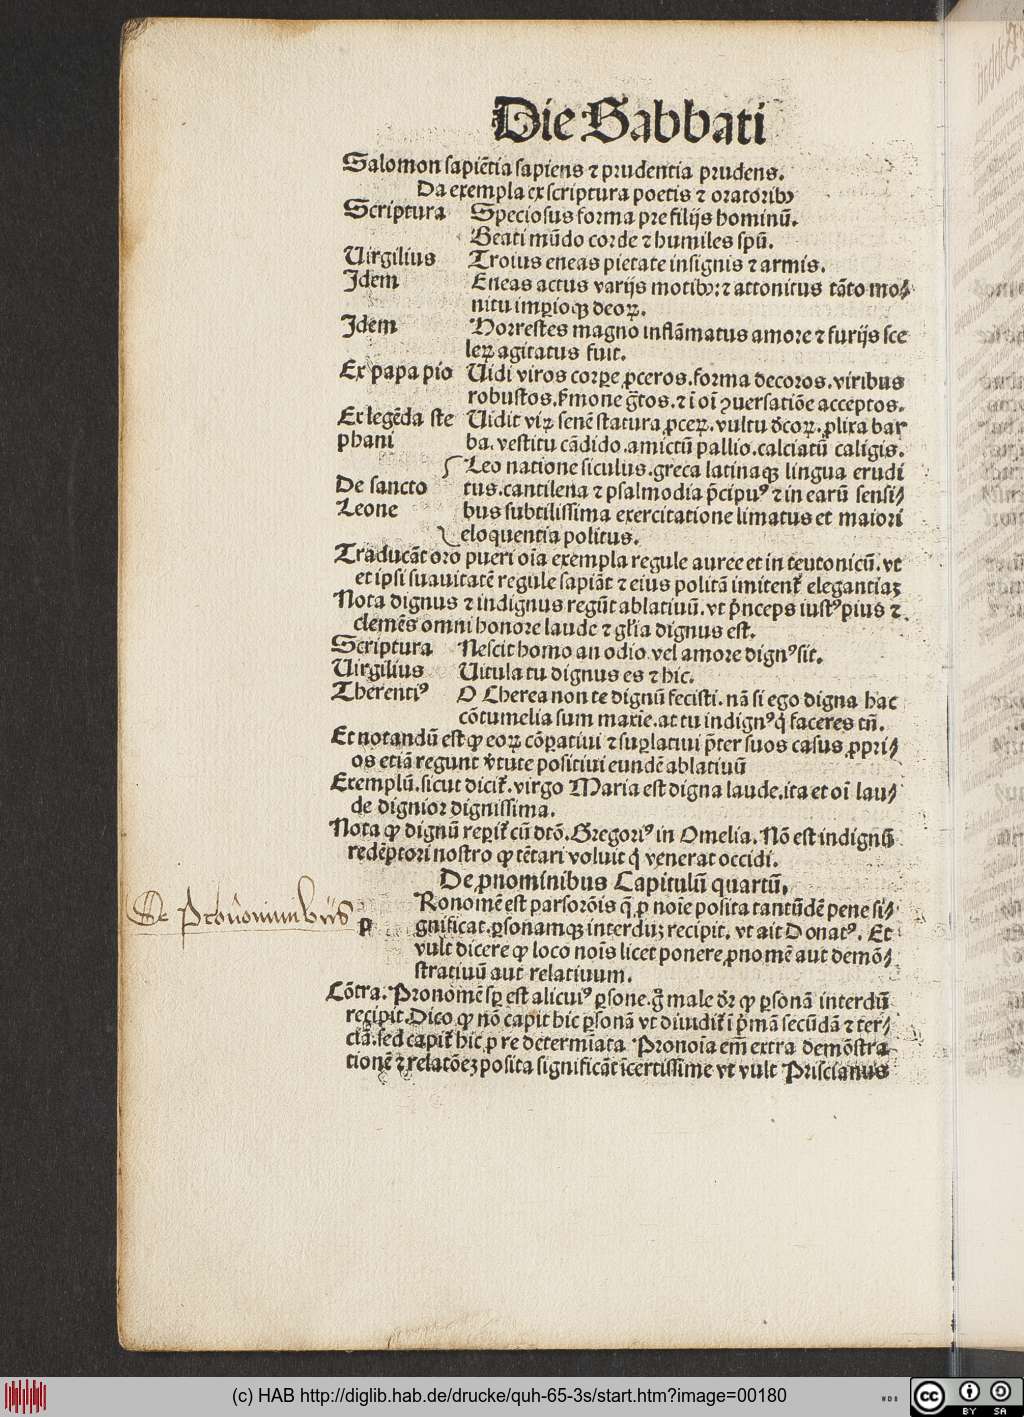 Die Sabbati
Salomon sapiẽtia sapiens ⁊ prudentia prudens.
Da exempla ex scriptura poetis ⁊ oratoribꝰ
Scriptura Speciosus forma pre filijs hominũ.
Beati mũdo corde ⁊ humiles spũ.
Uirgilius Troius eneas pietate insignis ⁊ armis.
Idem Eneas actus varijs motibꝰ: ⁊ attonitus tãto mo⸗
nitu imꝑioqꝫ deoꝝ.
Idem Horrestes magno inflãmatus amore ⁊ furijs sce
leꝝ agitatus fuit.
Ex papa pio Uidi viros corꝑe ꝓceros. forma decoros. viribus
robustos. ẜmone g̃tos. ⁊ ĩ oĩ ꝯuersatiõe acceptos.
Ex legẽda ste Uidit viꝝ senẽ statura ꝓceꝝ. vultu d̾coꝝ. ꝓlixa bar
phani ba. vestitu cãdido. amictũ pallio. calciatũ caligis.
Leo natione siculus. greca latinaqꝫ lingua erudi
De sancto tus. cantilena ⁊ psalmodia p̃cipuꝰ ⁊ in earũ sensi⸗
Leone bus subtilissima exercitatione limatus et maiori
eloquentia politus.
Traducãt oro pueri oĩa exempla regule auree et in teutonicũ. vt
et ipsi suauitatẽ regule sapiãt ⁊ eius politã imitent᷑ elegantiaꝫ
Nota dignus ⁊ indignus regũt ablatiuũ. vt p̃nceps iustꝰ pius ⁊
clemẽs omni honore laude ⁊ gl̃ia dignus est.
Scriptura Nescit homo an odio vel amore dignꝰ sit.
Uirgilius Uitula tu dignus es ⁊ hic.
Therentiꝰ O Cherea non te dignũ fecisti. nã si ego digna hac
cõtumelia sum maxie. at tu indignꝰ q̃ faceres tñ.
Et notandũ est ꝙ eoꝝ cõꝑatiui ⁊ suꝑlatiui p̃ter suos casus ꝓpri⸗
os etiã regunt v̾tute positiui eundẽ ablatiuũ
Exemplũ. sicut dicit᷑. virgo Maria est digna laude. ita et oĩ lau⸗
de dignior dignissima.
Nota ꝙ dignũ reꝑit᷑ cũ dtõ. Gregoriꝰ in Omelia. Nõ est indignũ
redẽptori nostro ꝙ tẽtari voluit q̃ venerat occidi.
De ꝓnominibus Capitulũ quartũ.
De Pronominibus
p Ronomẽ est pars orõis q̃ ꝓ noĩe posita tantũdẽ pene si⸗
gnificat. ꝑsonamqꝫ interduꝫ recipit. vt ait Donatꝰ. Et
vult dicere ꝙ loco noĩs licet ponere ꝓnomẽ aut demõ⸗
stratiuũ aut relatiuum.
Cõtra. Pronomẽ sꝑ est alicuiꝰ ꝑsone. g̃ male d̾r ꝙ ꝑsonã interdũ
recipit. Dico ꝙ nõ capit hic ꝑsonã vt diuidit᷑ ĩ p̃mã secũdã ⁊ ter⸗
ciã. sed capit᷑ hic ꝓ re determĩata Pronoĩa em̃ extra demõstra
tionẽ ⁊ relatõeꝫ posita significãt ĩcertissime vt vult Priscianus
(c) HAB http://diglib.hab.de/drucke/quh-65-3s/start.htm?image=00180
WDB
cc BY SA